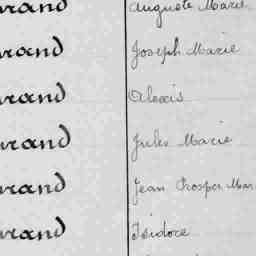 rand Auguste Marie
rand Joseph Marie
rand Alexis
rand Jules Marie
rand Jean Prosper Mar
rand Isidore